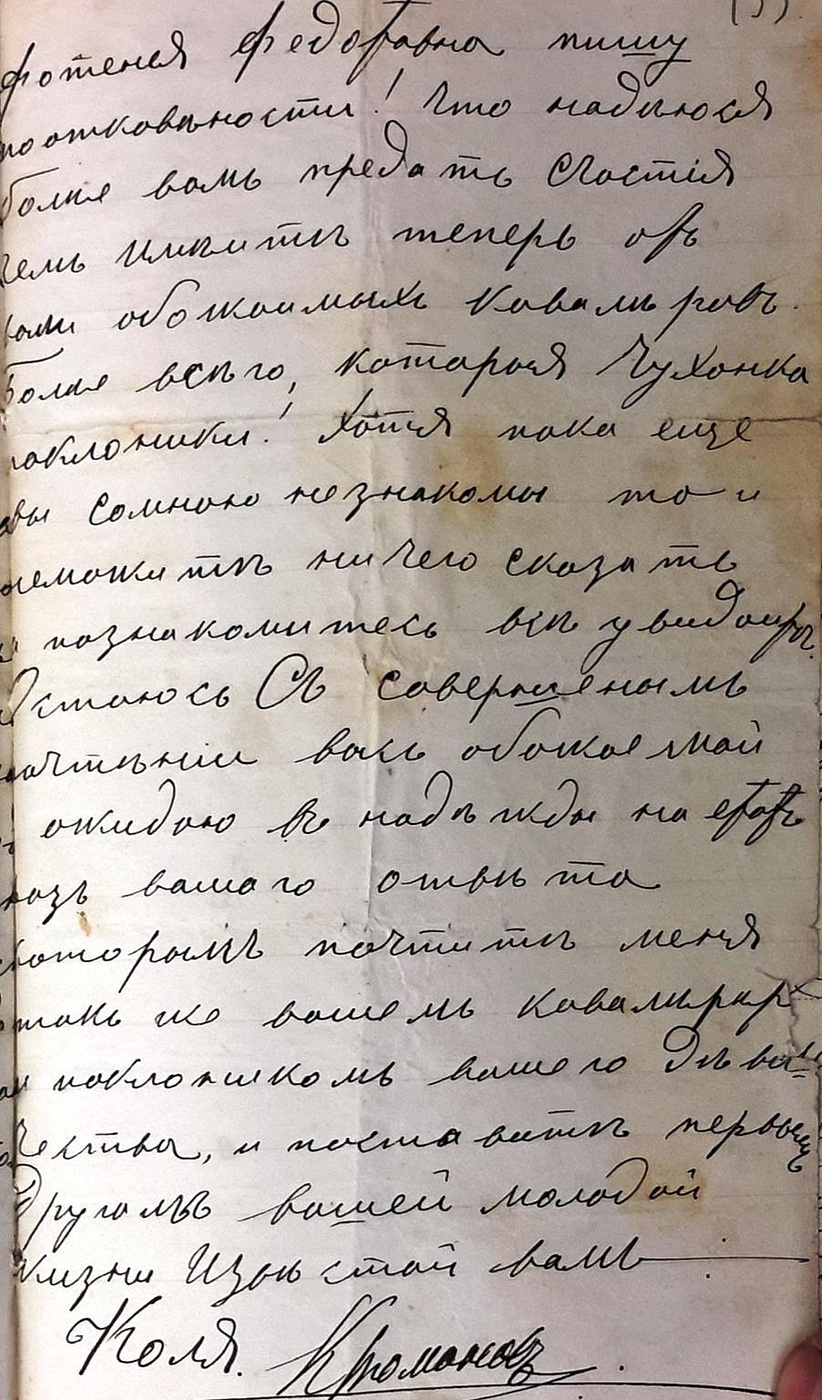 Фотенея Федотовна пишу
поотковѣности! Что надѣюсЯ
болѣе вамъ предать счастія
чемъ имѣите теперь отъ
вами обожаимыхъ кавалѣровъ.
Болѣе всѣго, которыя Чухонка
поклоники! Хотя пока еще
вы сомною незнакомы то и
неможитѣ ничего сказать
познакомитесь всѣ увидаите.
Остаюсь Съ совершенымъ
почтѣнии васъ обожаемай
ожидаю въ надѣжды на етотъ
разъ вашаго отвѣта
которымъ почтитѣ меня
также вашемъ кавалѣром
поклоникомъ вашего Дѣви-
чества, и поставитѣ первымъ
Другомъ вашей молодой
жизни Изъвстой вамъ
Коля. КРомановъ.